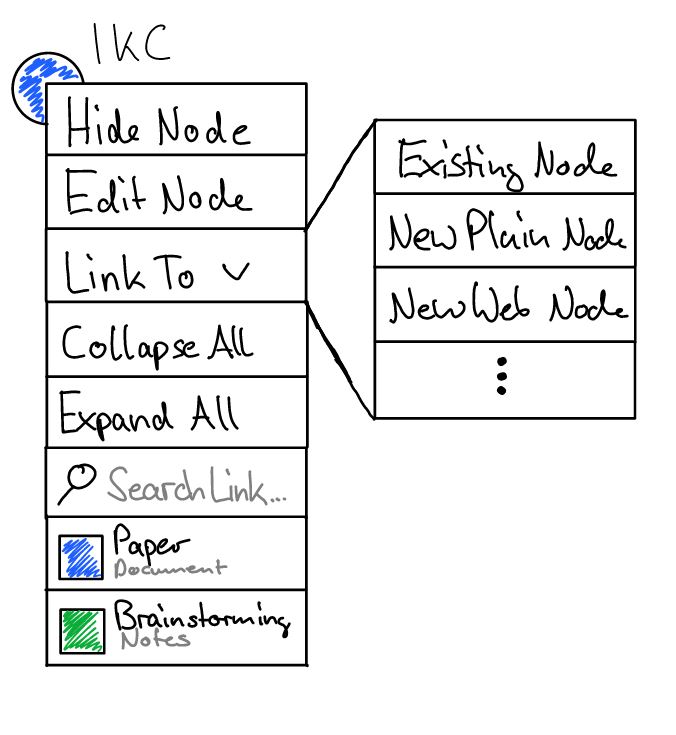 IKC
Hide Node
Edit Node
Link To
Collapse All
Expand All
Search Link...
Paper
Document
Brainstorming
Notes
Existing Node
New Plain Node
New Web Node